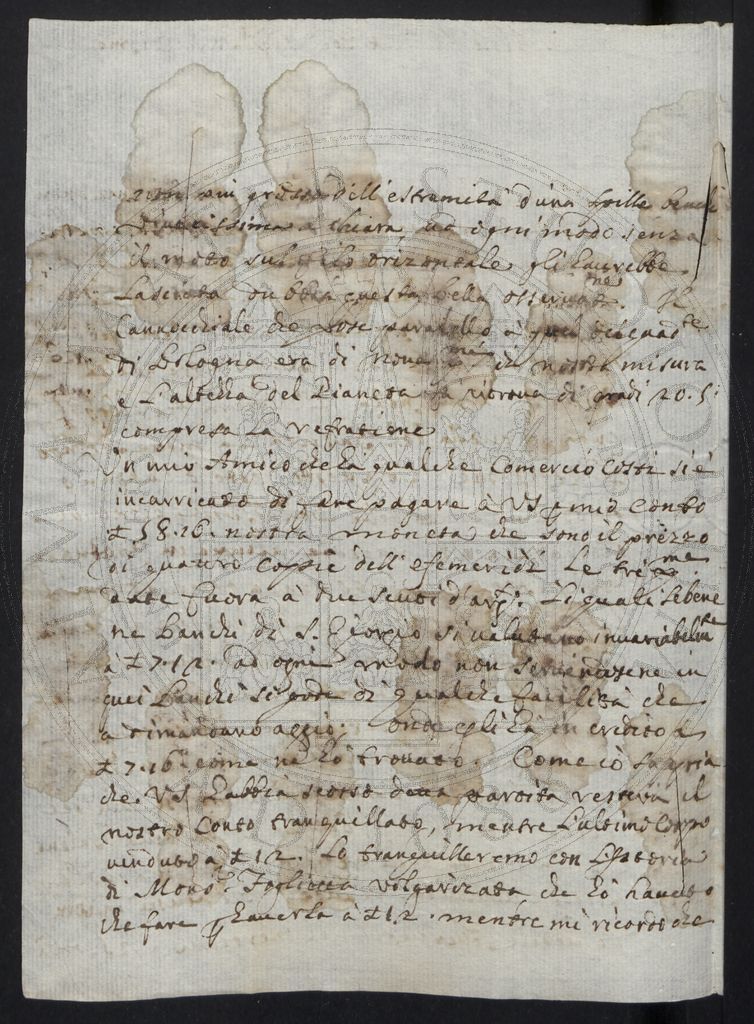 più grossa dell'estremità d'una stille benche
a chiara ad ogni modo senza
il moto sul filo orizontale gli havrebbe
Lasciata dubbia questa bella osservatne. Il
Cannochiale che pose paralello à quel
di Bologna era di nove di nostra misura
e L'altezza del Pianeta si ritrova di gradi 20. 5'
compresa La refratione
Un mio Amico che hà qualche Comercio Costì si è
incarricato di fare pagare à VS p mio Conto
₤ 18.16. nostra moneta che sono il prezzo
di quattro Coppie dell'efemeridi Le tre
date fuora à due scudi d'arg.to Li quali sebene
ne banchi di S. Giorgio si valutano invariabilmte
à ₤ 7.12. ad ogni modo non servendosene in
quei banchi si gode di qualche facilità che
à dimandano aggio; onde egli hà in credito à
₤ 7.16 come ne hò trovato. Come ciò
che VS habbia scosso detta partita resterà il
nostro Conto tranquillato, mentre L'ultimo Corpo
venduto à ₤ 12. Lo tranquilleremo con L'Istoria
di Mons.r volgarizata che hò havuto
che fare p haverla à ₤ 12. mentre mi ricordo che